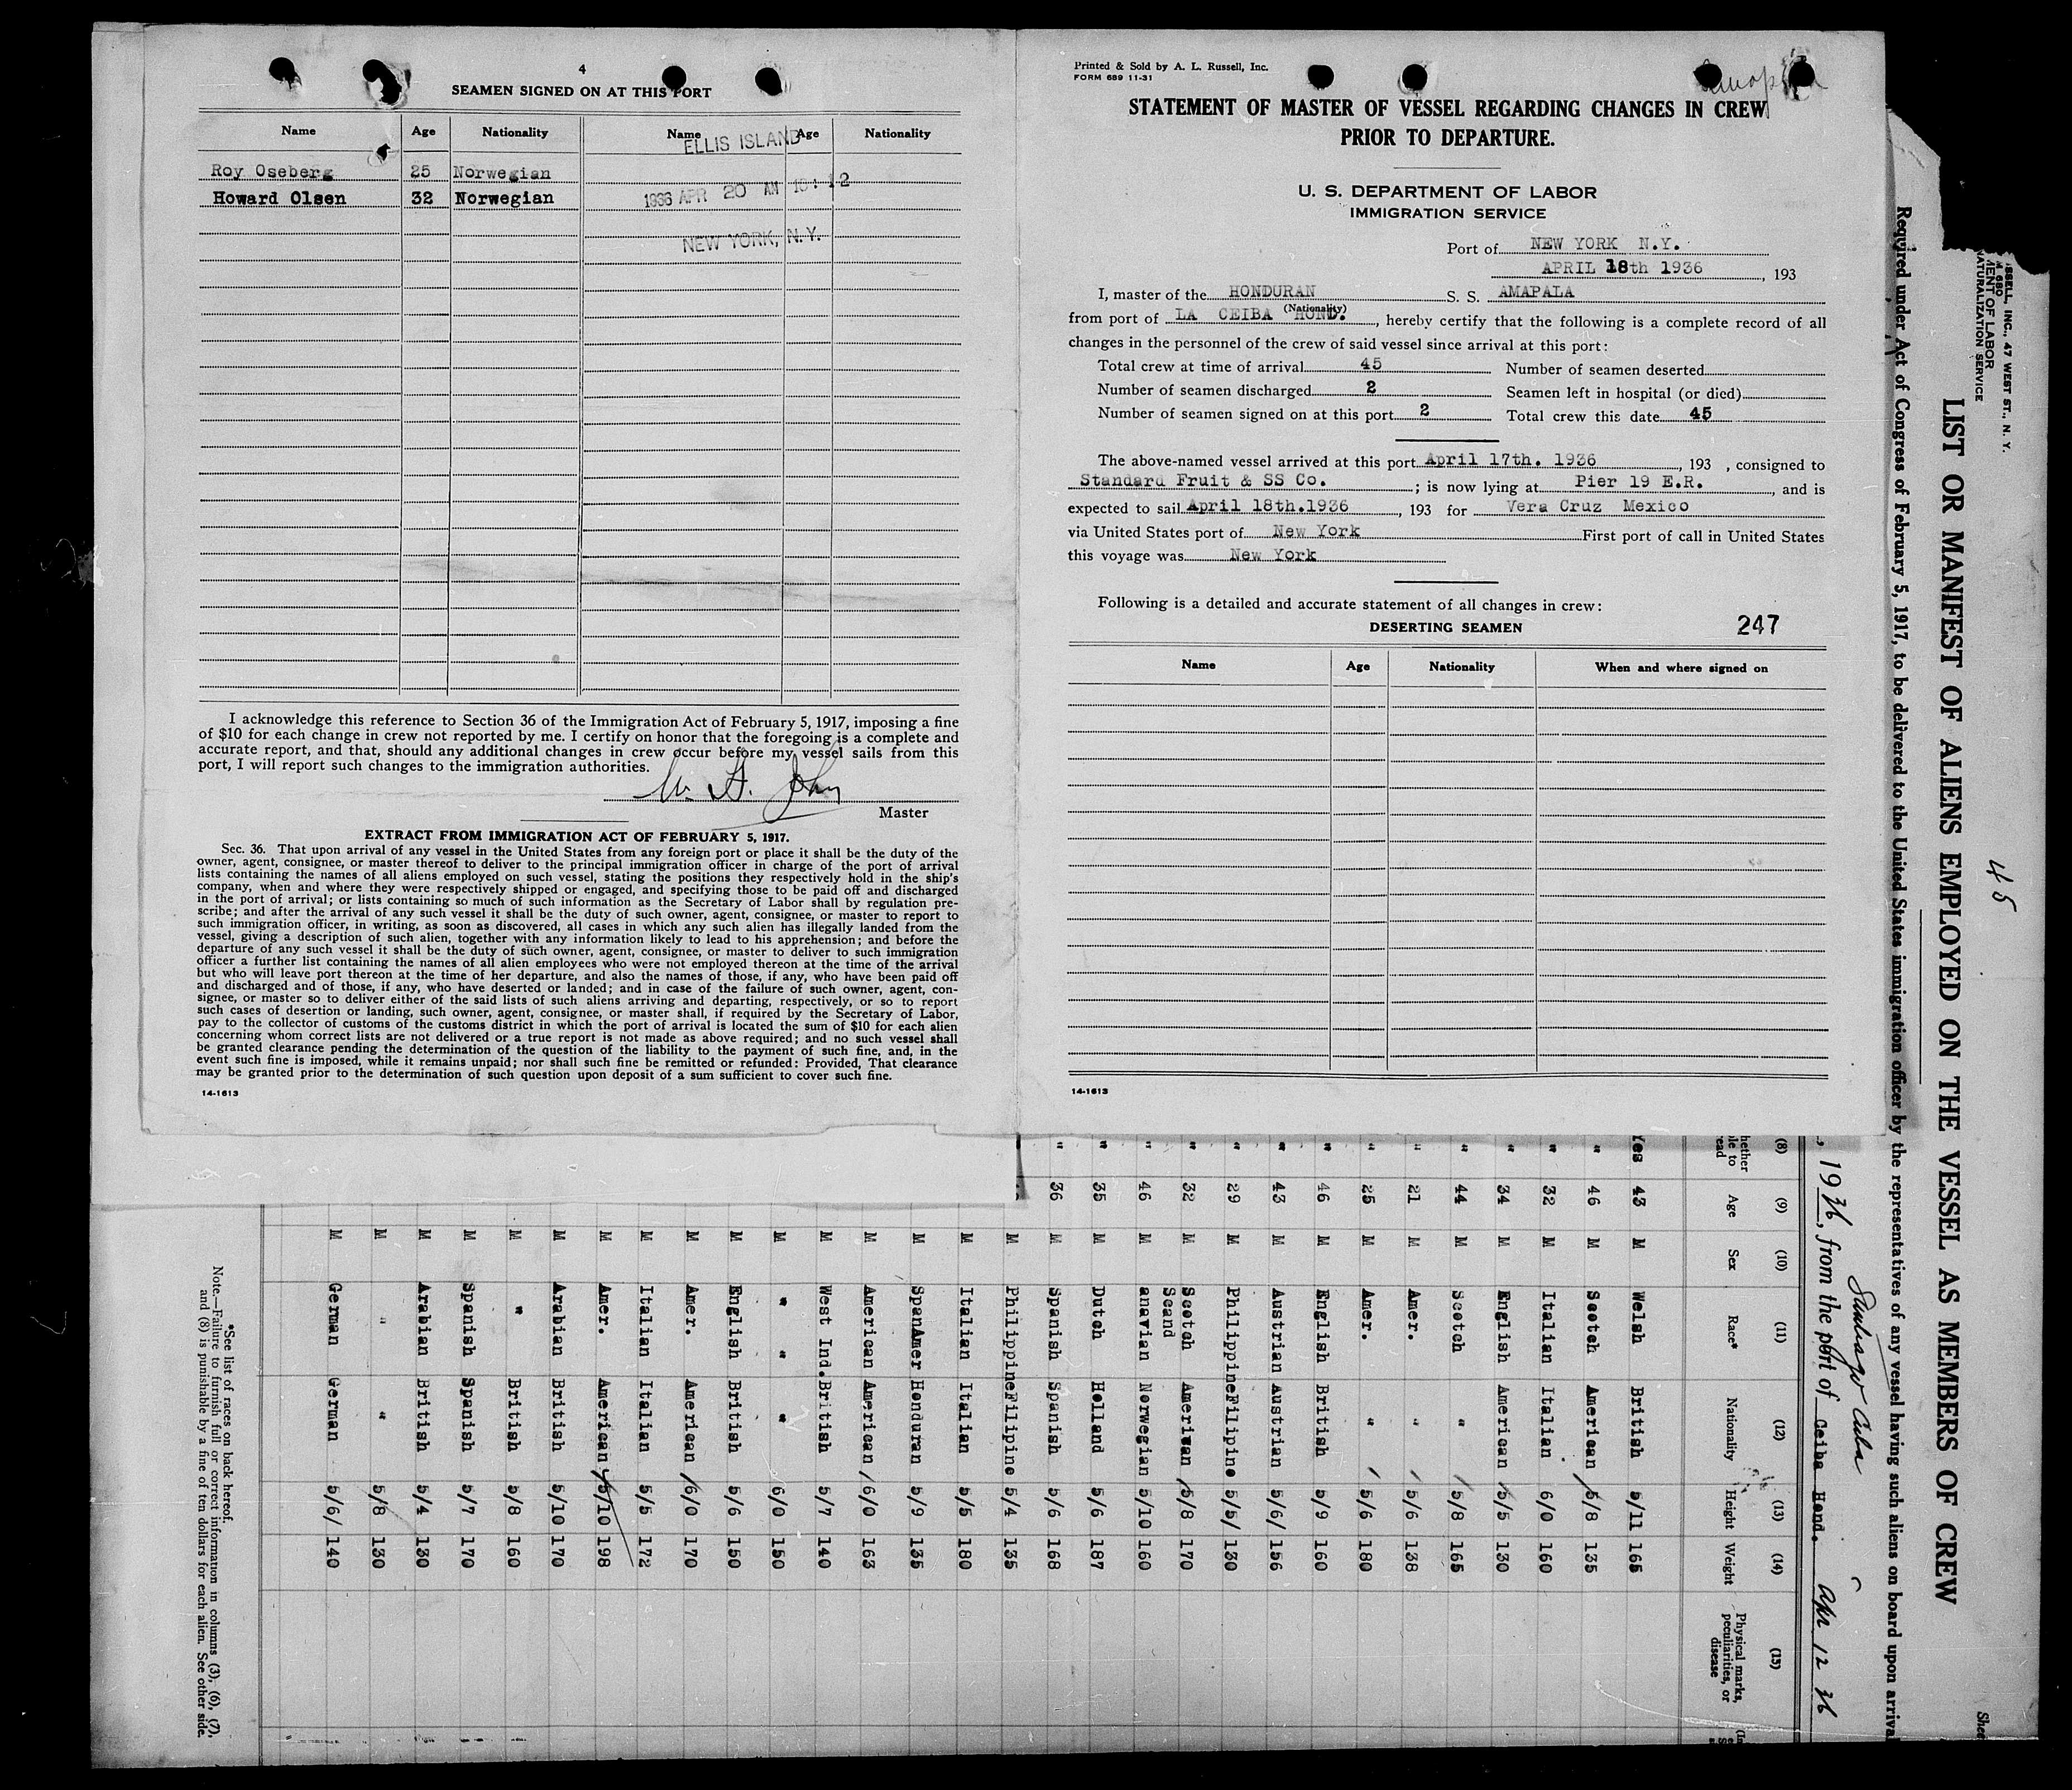 4
SEAMEN SIGNED ON AT THIS PORT
Name Age Nationality Name Age Nationality
ELLIS ISLAND
Roy Oseberg 25 Norwegian
Howard Olsen 32 Norwegian
1936 APR 20 AM 10:12
NEW YORK, N.Y.
I acknowledge this reference to Section 36 of the Immigration Act of February 5, 1917, imposing a fine
of $10 for each change in crew not reported by me. I certify on honor that the foregoing is a complete and
accurate report, and that, should any additional changes in crew occur before my vessel sails from this
port, I will report such changes to the immigration authorities.
Master
EXTRACT FROM IMMIGRATION ACT OF FEBRUARY 5, 1917.
Sec. 36. That upon arrival of any vessel in the United States from any foreign port or place it shall be the duty of the
owner, agent, consignee, or master thereof to deliver to the principal immigration officer in charge of the port of arrival
lists containing the names of all aliens employed on such vessel, stating the positions they respectively hold in the ship's
company, when and where they were respectively shipped or engaged, and specifying those to be paid off and discharged
in the port of arrival; or lists containing so much of such information as the Secretary of Labor shall by regulation pre-
scribe; and after the arrival of any such vessel it shall be the duty of such owner, agent, consignee, or master to report to
such immigration officer, in writing, as soon as discovered, all cases in which any such alien has illegally landed from the
vessel, giving a description of such alien, together with any information likely to lead to his apprehension; and before the
departure of any such vessel it shall be the duty of such owner, agent, consignee, or master to deliver to such immigration
officer a further list containing the names of all alien employees who were not employed thereon at the time of the arrival
but who will leave port thereon at the time of her departure, and also the names of those, if any, who have been paid off
and discharged and of those, if any, who have deserted or landed; and in case of the failure of such owner, agent, con-
signee, or master so to deliver either of the said lists of such aliens arriving and departing, respectively, or so to report
such cases of desertion or landing, such owner, agent, consignee, or master shall, if required by the Secretary of Labor,
pay to the collector of customs of the customs district in which the port of arrival is located the sum of $10 for each alien
concerning whom correct lists are not delivered or a true report is not made as above required; and no such vessel shall
be granted clearance pending the determination of the question of the liability to the payment of such fine, and, in the
event such fine is imposed, while it remains unpaid; nor shall such fine be remitted or refunded: Provided, That clearance
may be granted prior to the determination of such question upon deposit of a sum sufficient to cover such fine.
14-1613
Printed & Sold by A. L. Russell, Inc.
FORM 689 11-31
STATEMENT OF MASTER OF VESSEL REGARDING CHANGES IN CREW
PRIOR TO DEPARTURE.
U. S. DEPARTMENT OF LABOR
IMMIGRATION SERVICE
Port of NEW YORK N.Y.
APRIL 18th 1936, 193
I, master of the HONDURAN S. S. AMAPALA
(Nationality)
from port of LA CEIBA HOND., hereby certify that the following is a complete record of all
changes in the personnel of the crew of said vessel since arrival at this port:
Total crew at time of arrival 45 Number of seamen deserted
Number of seamen discharged 2 Seamen left in hospital (or died)
Number of seamen signed on at this port 2 Total crew this date 45
The above-named vessel arrived at this port April 17th. 1936, 193 , consigned to
Standard Fruit & SS Co. ; is now lying at Pier 19 E.R. , and is
expected to sail April 18th.1936 , 193 for Vera Cruz Mexico
via United States port of New York First port of call in United States
this voyage was New York
Following is a detailed and accurate statement of all changes in crew:
DESERTING SEAMEN 247
Name Age Nationality When and where signed on
14-1613
SSELL, INC., 47 WEST ST., N. Y.
680
MENT OF LABOR
NATURALIZATION SERVICE
45
Shee
LIST OR MANIFEST OF ALIENS EMPLOYED ON THE VESSEL AS MEMBERS OF CREW
Required under Act of Congress of February 5, 1917, to be delivered to the United States immigration officer by the representatives of any vessel having such aliens on board upon arriva
Santiago Cuba
, 1936, from the port of Ceiba Hond. Apr 12 36
(8) (9) (10) (11) (12) (13) (14) (15)
hether
le to
ead Age Sex Race* Nationality Height Weight Physical marks, peculiarities, or disease
Yes 43 M Welsh British 5/11 165
" 46 M Scotch American 5/8 135
" 32 M Italian Italian 6/0 160
" 34 M English American 5/5 130
" 44 M Scotch " 5/8 165
" 21 M Amer. " 5/6 138
" 25 M Amer. " 5/6 180
" 46 M English British 5/9 160
" 43 M Austrian Austrian 5/6/ 156
" 29 M Philippine Filipine 5/5/ 130
" 32 M Scotch American 5/8 170
" 46 M Scand
anavian Norwegian 5/10 160
" 35 M Dutch Holland 5/6 187
" 36 M Spanish Spanish 5/6 168
M Philippine Filipine 5/4 135
M Italian Italian 5/5 180
M SpanAmer Honduran 5/9 135
M American American 6/0 163
M West Ind. British 5/7 140
M " " " 6/0 150
M English British 5/6 150
M Amer. American 6/0 170
M Italian Italian 5/5 172
M Amer. American 5/10 198
M Arabian British 5/10 170
M " British 5/8 160
M Spanish Spanish 5/7 170
M Arabian British 5/4 130
M " " 5/8 130
M German German 5/6/ 140
*See list of races on back hereof.
Note.—Failure to furnish full or correct information in columns (3), (6), (7),
and (8) is punishable by a fine of ten dollars for each alien. See other side.